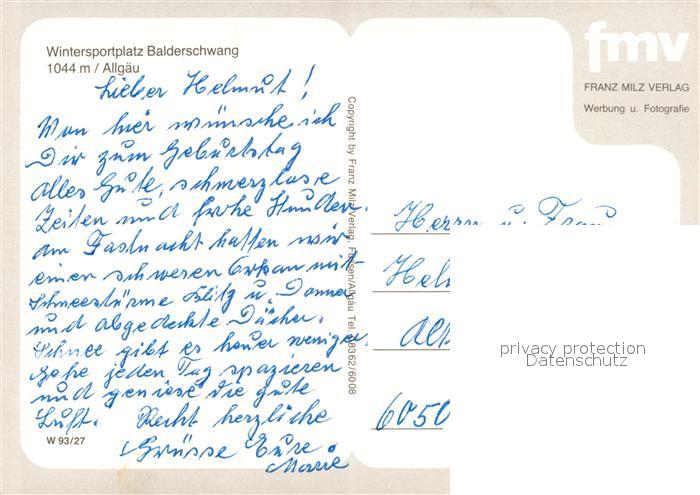 Wintersportplatz Balderschwang
1044 m / Allgäu
Lieber Helmut!
Von hier wünsche ich
Dir zum Geburtstag
alles Gute, schmerzlose
Zeiten und frohe Stunden.
Am Fastnacht hatten wir
einen schweren Orkan mit
Schneestürme Blitz u. Donner
und abgedeckte Dächer.
Schnee gibt es heuer weniger.
Gehe jeden Tag spazieren
und geniese die gute
Luft. Recht herzliche
Grüsse Eure
W 93/27
Copyright by Franz Milz Verlag, Füssen/Allgäu Tel. 08362/6008
fmv
FRANZ MILZ VERLAG
Werbung u. Fotografie
Herrn u. Frau
Hel
6050
privacy protection
Datenschutz